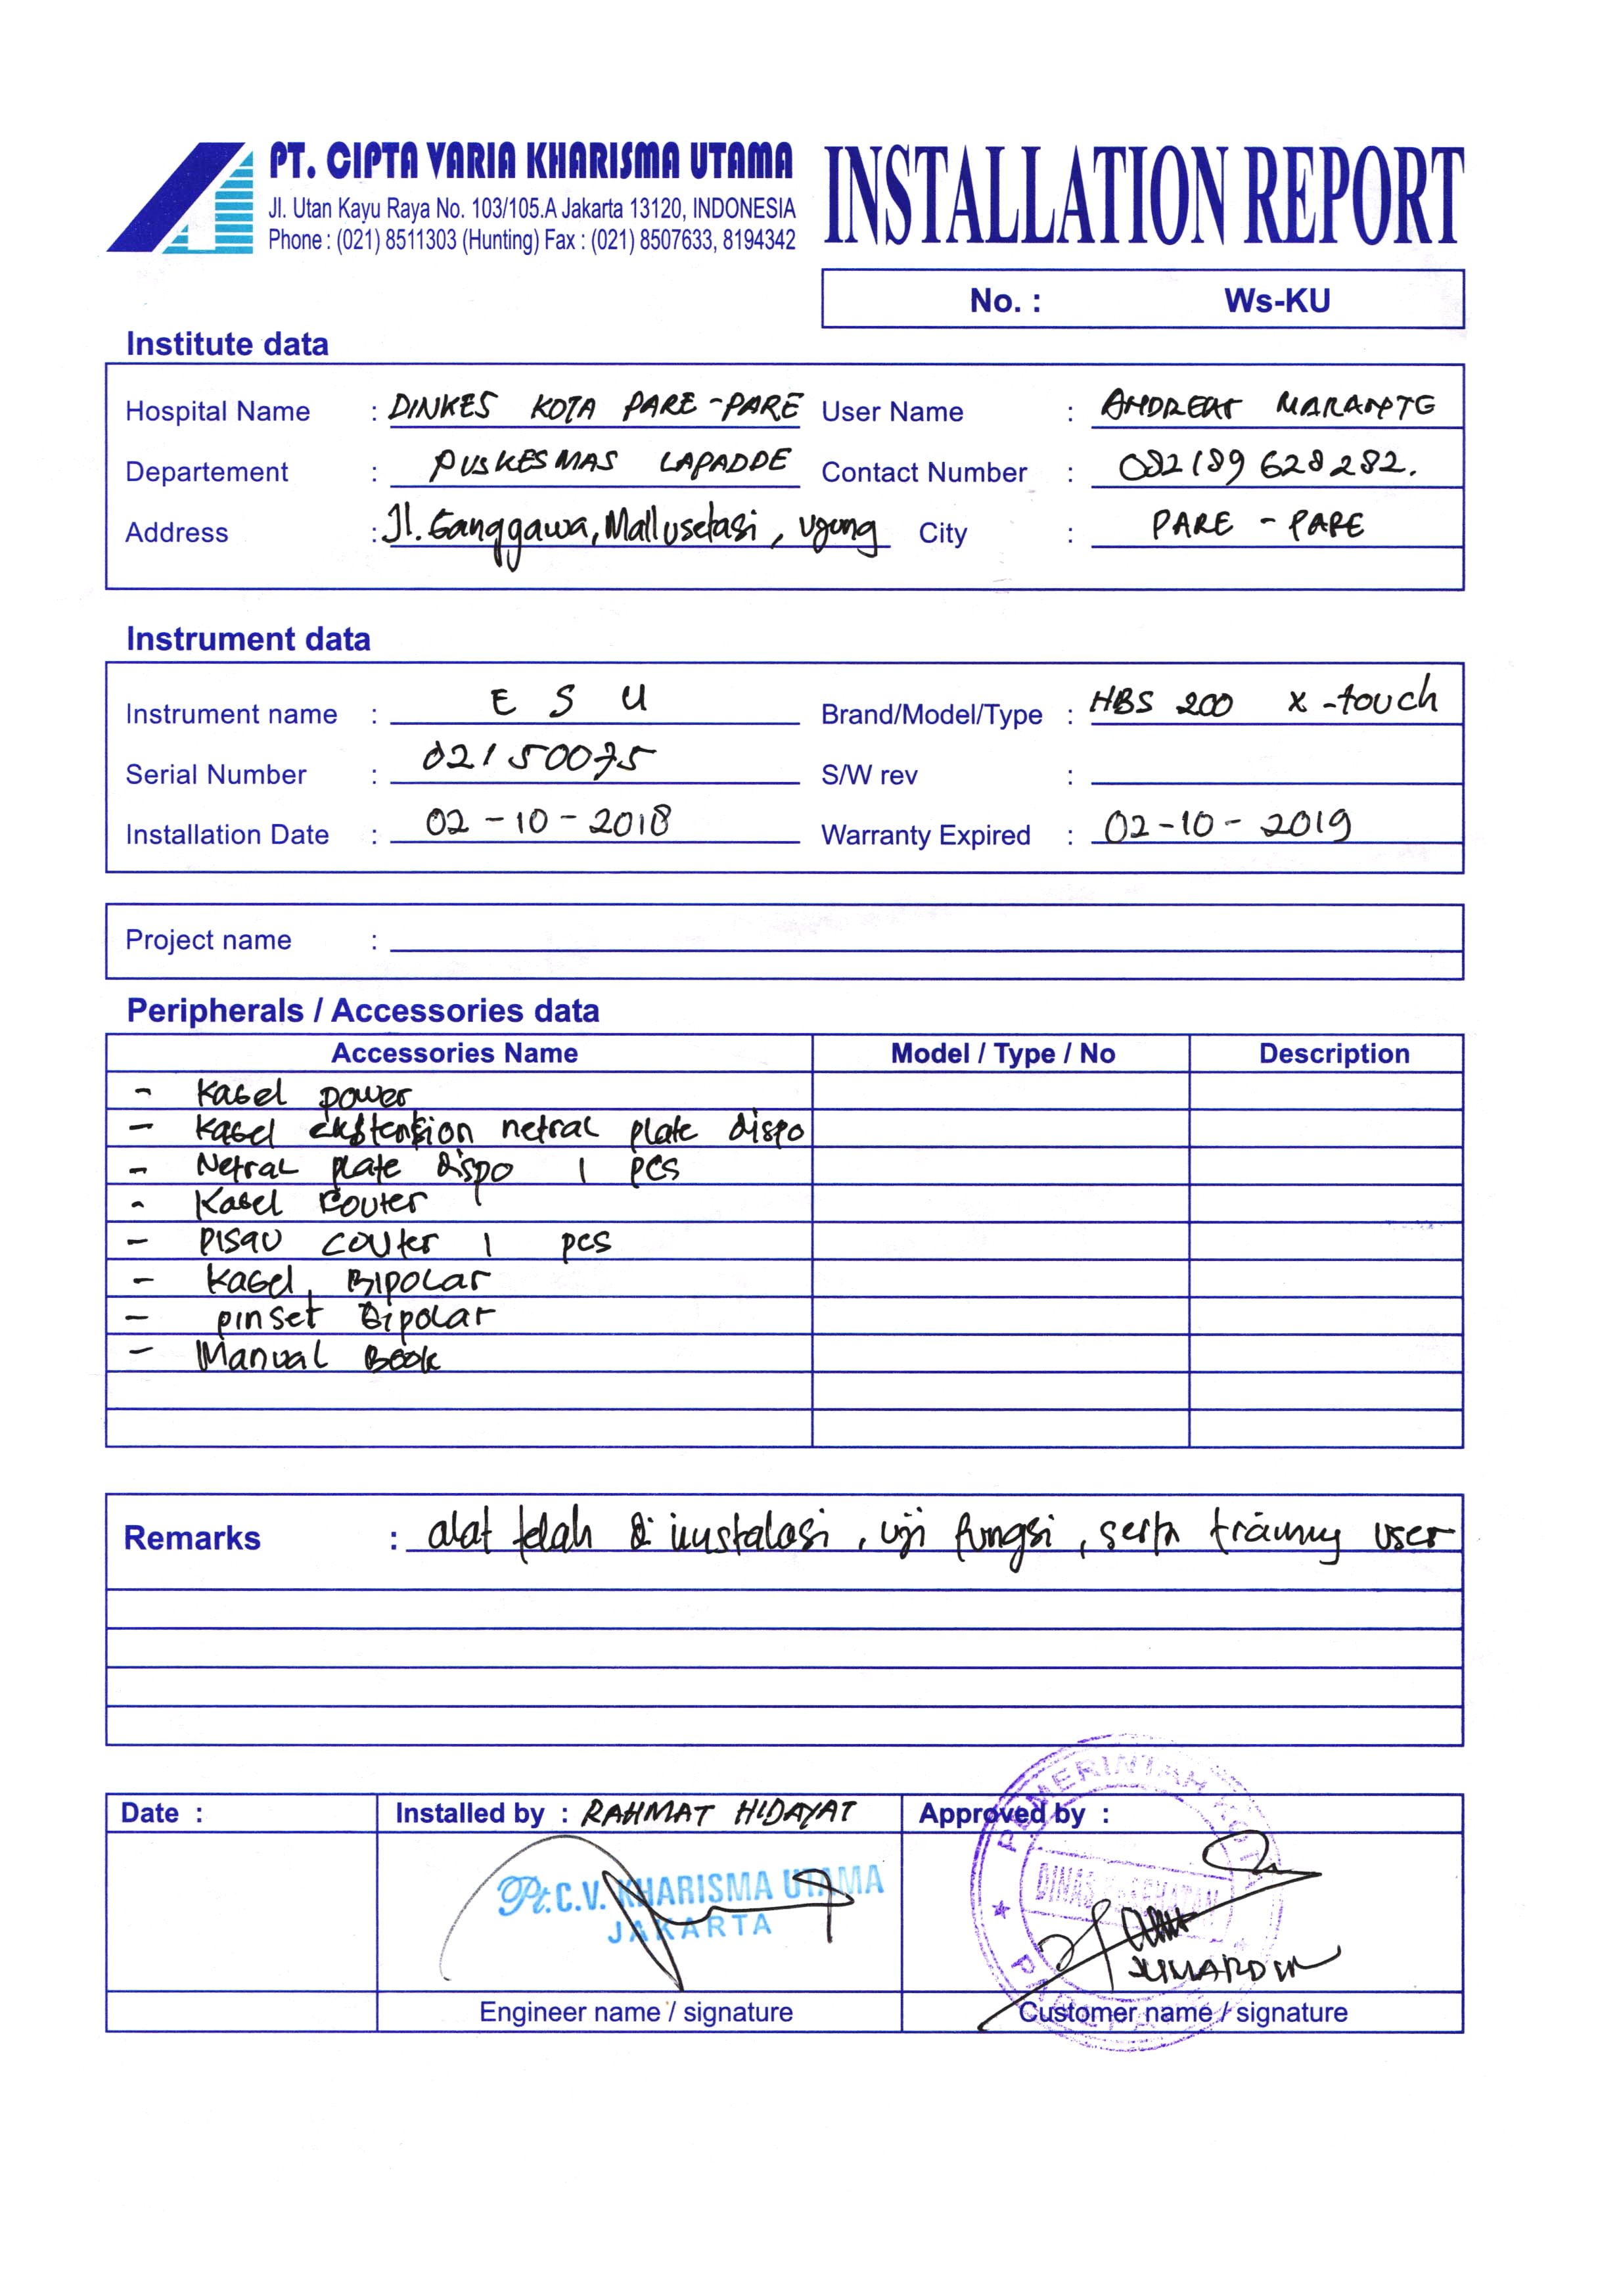 PT. CIPTA VARIA KHARISMA UTAMA
Jl. Utan Kayu Raya No. 103/105.A Jakarta 13120, INDONESIA
Phone : (021) 8511303 (Hunting) Fax : (021) 8507633, 8194342
INSTALLATION REPORT
No. : Ws-KU
Institute data
Hospital Name : DINKES KOTA PARE-PARE User Name :
Departement : PUSKESMAS LAPADDE Contact Number : 082189628282.
Address : Jl. Ganggawa, Mallusetasi, Ujung City : PARE - PARE
Instrument data
Instrument name : E S U Brand/Model/Type : HBS 200 X-touch
Serial Number : 02150075 S/W rev :
Installation Date : 02-10-2018 Warranty Expired : 02-10-2019
Project name :
Peripherals / Accessories data
Accessories Name Model / Type / No Description
- Kabel power
- Kabel netral plate dispo
- Netral plate dispo 1 pcs
- Kabel couter
- pisau couter 1 pcs
- Kabel Bipolar
- pinset Bipolar
- Manual Book
Remarks : alat telah di instalasi, uji fungsi, serta training user
Date : Installed by : RAHMAT HIDAYAT Approved by :
Pt.C.V. KHARISMA UTAMA
JAKARTA
PEMERINTAH KOTA
DINAS KESEHATAN
Engineer name / signature Customer name / signature